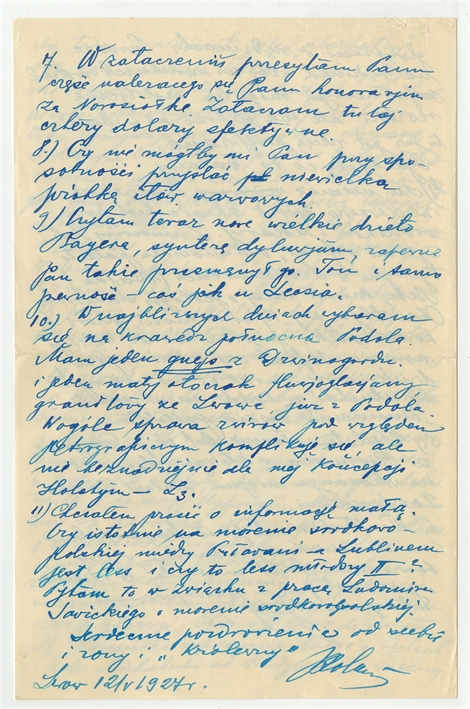 7. W załączeniu przesyłam Panu
część należącego się Panu honorarjum
za Norosiółkę. Załączam tutaj
cztery dolary efektywne.
8.) Czy nie mógłby mi Pan przy spo-
sobności przysłać niewielką
próbkę iłów warwowych.
9) Czytam teraz nowe wielkie dzieło
Bayera, syntezę dyluwjum, zapewne
Pan także przemęczył go. Ton i sama
pewność – coś jak u Leosia.
10.) W najbliższych dniach wybieram
się na krawędź północną Podola.
Mam jeden gnejs z Dzwinogrodu
i jeden mały otoczak fluwjoglacjalny
granitowy ze Lwowa już z Podola.
Wogóle sprawa żwirów pod względem
petrograficznym komplikuje się, ale
nie beznadziejnie dla mej koncepcji
11) Chciałem prosić o informację małą.
Czy istotnie na morenie środkowo-
polskiej między Puławami a Lublinem
jest less i czy to less młodszy II?
Pytam to w związku z pracą Ludomira
Sawickiego i morenie środkowopolskiej.
Serdeczne pozdrowienia od siebie
i żony i „Królewny”
Lwów 12/V 1927 r.